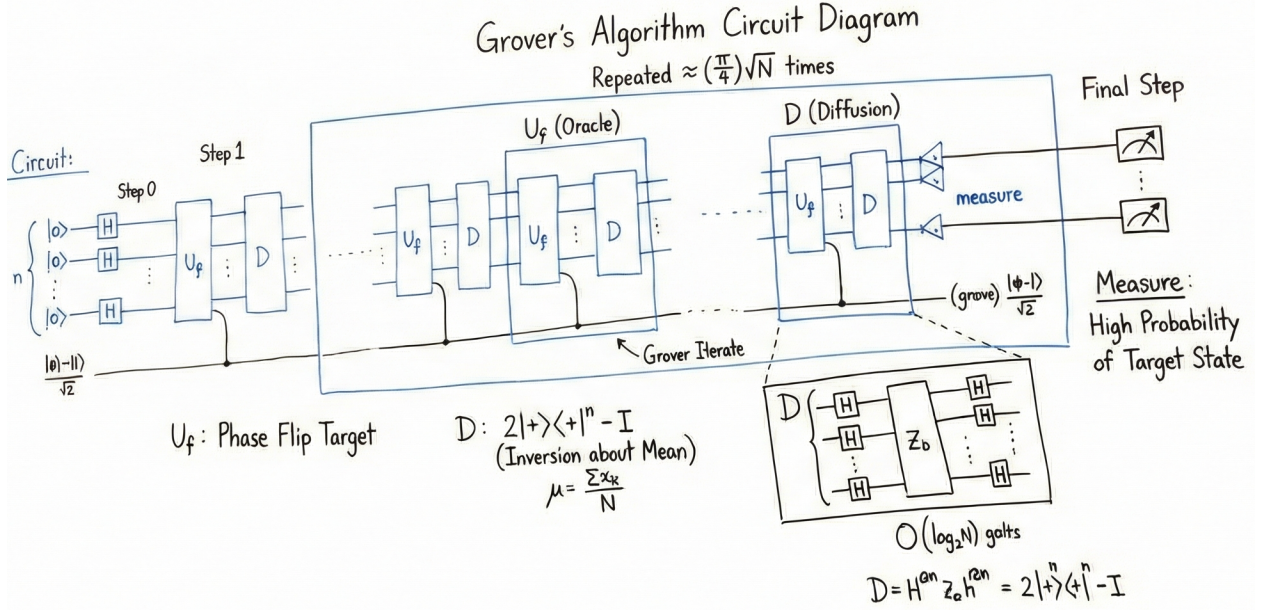 Grover's Algorithm Circuit Diagram
Repeated ≈ (π/4)√N times
Final Step
D (Diffusion)
U_f (Oracle)
Circuit:
Step 1
Step 0
n
|0> H
|0> H
⋮
|0> H
U_f
D
U_f
D
U_f
D
U_f
D
measure
|0)-|1⟩/√2
(gnove) |φ-|⟩/√2
Grover Iterate
Measure:
High Probability
of Target State
U_f: Phase Flip Target
D: 2|+><+|ⁿ - I
(Inversion about Mean)
μ = Σx_k/N
D
H
H
H
Z_b
H
H
H
O(log₂N) galts